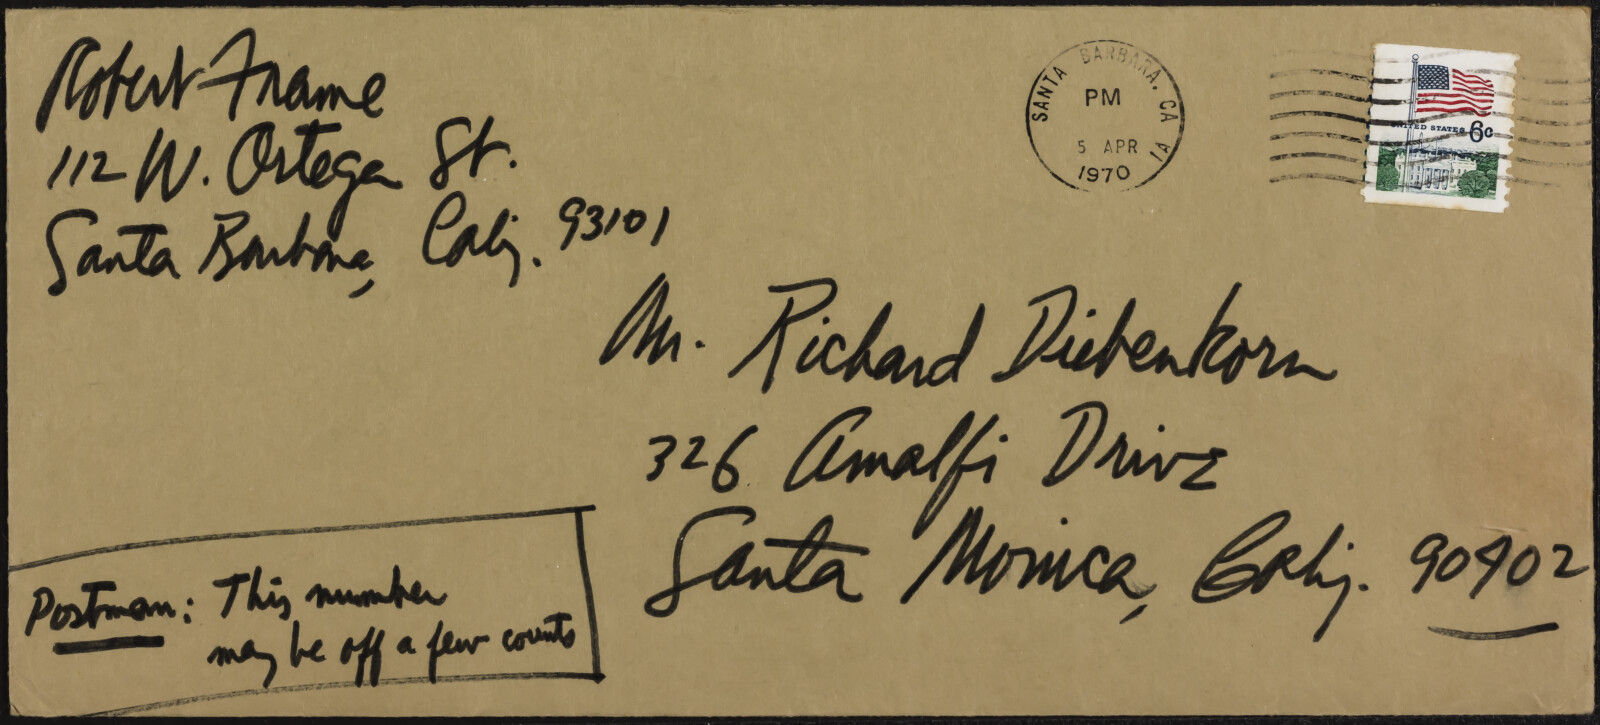 Robert Frame
112 W. Ortega St.
Santa Barbara, Calif. 93101
SANTA BARBARA, CA
PM
5 APR
1970
1A
UNITED STATES 6c
Mr. Richard Diebenkorn
326 Amalfi Drive
Santa Monica, Calif. 90402
Postman: This number
may be off a few counts